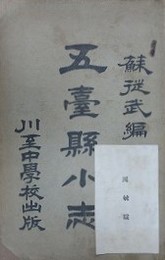 蘇從武編
五臺縣小志
川至中學校出版